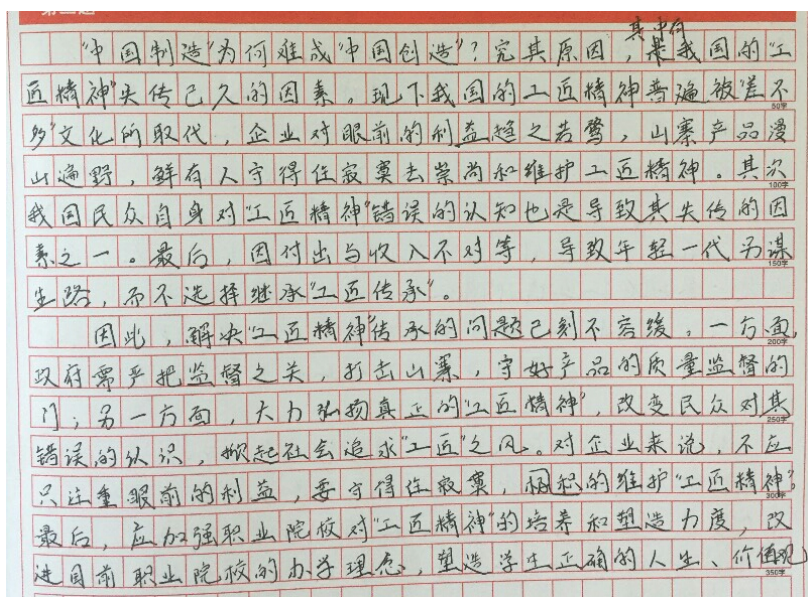 “中国制造”为何难成“中国创造”？究其原因，其中有我国的“工
匠精神”失传已久的因素。现下我国的工匠精神普遍被“差不
50字
多”文化所取代，企业对眼前的利益趋之若鹜，山寨产品漫
山遍野，鲜有人守得住寂寞去崇尚和维护工匠精神。其次
100字
我国民众自身对“工匠精神”错误的认知也是导致其失传的因
素之一。最后，因付出与收入不对等，导致年轻一代另谋
150字
生路，而不选择继承“工匠传承”。
因此，解决“工匠精神”传承的问题已刻不容缓，一方面，
200字
政府需严把监督之关，打击山寨，守好产品的质量监督的
门；另一方面，大力弘扬真正的“工匠精神”，改变民众对其
250字
错误的认识，掀起社会追求“工匠”之风。对企业来说，不应
只注重眼前的利益，要守得住寂寞，积极的维护“工匠精神”。
300字
最后，应加强职业院校对“工匠精神”的培养和塑造力度，改
进目前职业院校的办学理念，塑造学生正确的人生、价值观
350字